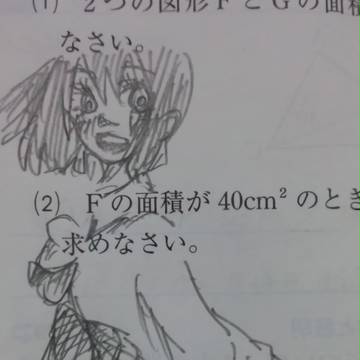 (1) 2つの図形FとGの面積
なさい。
(2) Fの面積が40cm²のとき
求めなさい。